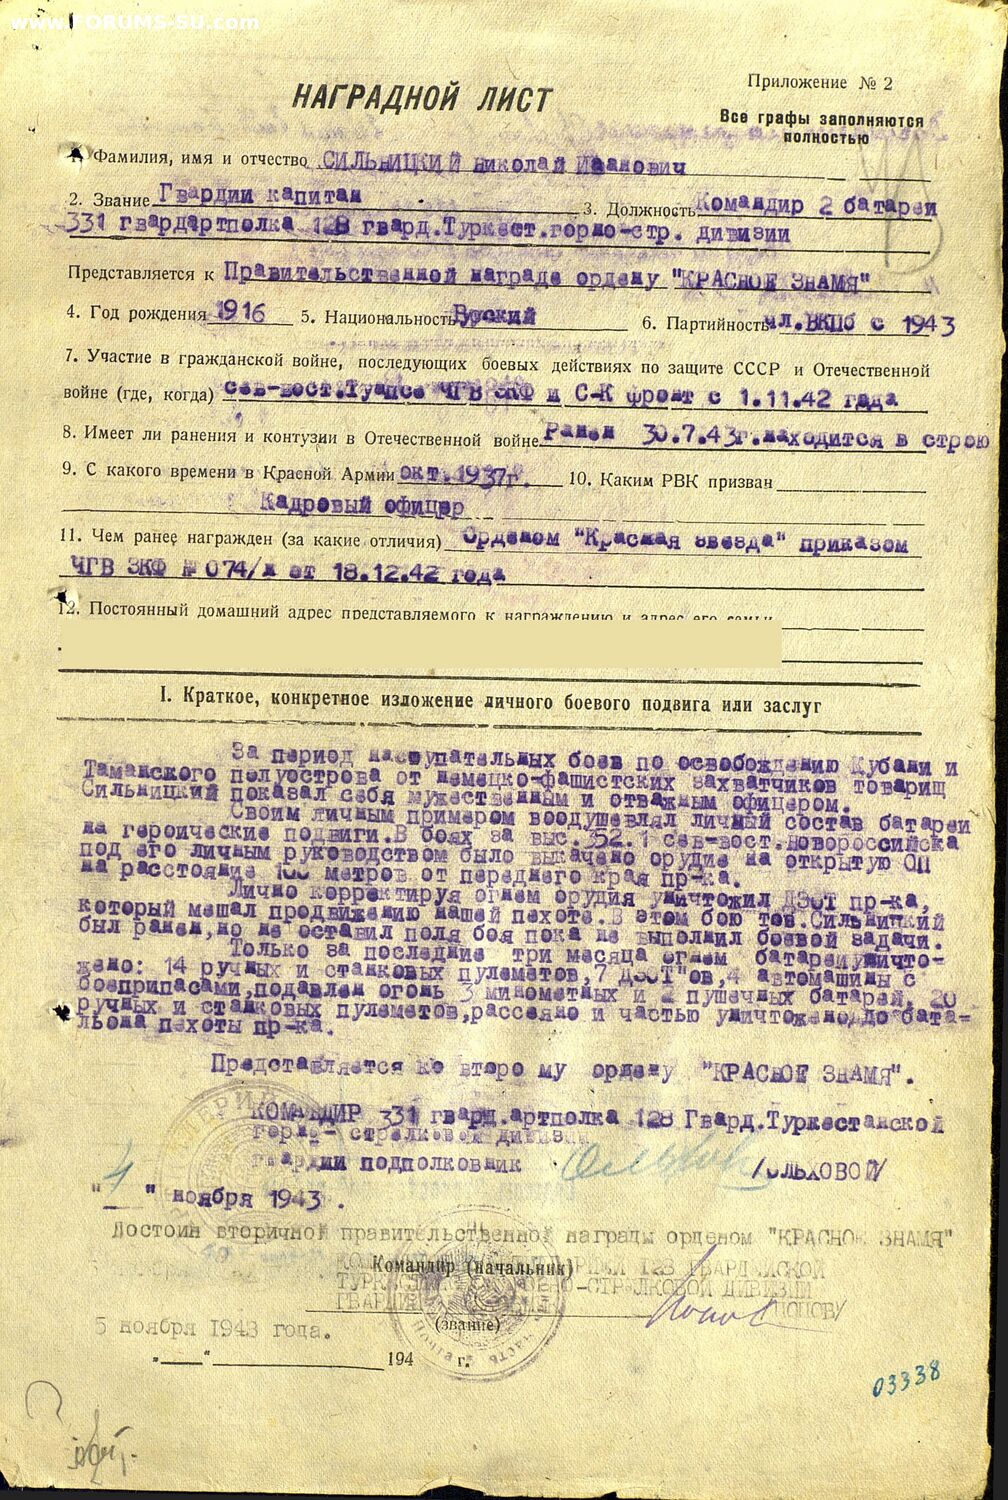 www.FORUMS-SU.com
Приложение № 2
НАГРАДНОЙ ЛИСТ
Все графы заполняются
полностью
1. Фамилия, имя и отчество СИЛЬНИЦКИЙ Николай Иванович
2. Звание Гвардии капитан 3. Должность Командир 2 батареи
331 гвардартполка 128 гвард.Туркест.горно-стр. дивизии
Представляется к Правительственной награде ордену "КРАСНОЕ ЗНАМЯ"
4. Год рождения 1916 5. Национальность Русский 6. Партийность чл.ВКПб с 1943
7. Участие в гражданской войне, последующих боевых действиях по защите СССР и Отечественной
войне (где, когда) сев-вост.Туапсе ЧГВ ЗКФ и С-К фронт с 1.11.42 года
8. Имеет ли ранения и контузии в Отечественной войне Ранен 30.7.43г.находится в строю
9. С какого времени в Красной Армии окт.1937г. 10. Каким РВК призван
Кадровый офицер
11. Чем ранее награжден (за какие отличия) Орденом "Красная звезда" приказом
ЧГВ ЗКФ № 074/н от 18.12.42 года
12. Постоянный домашний адрес представляемого к награждению и адрес его семьи
I. Краткое, конкретное изложение личного боевого подвига или заслуг
За период наступательных боев по освобождению Кубани и
Таманского полуострова от немецко-фашистских захватчиков товарищ
Сильницкий показал себя мужественным и отважным офицером.
Своим личным примером воодушевлял личный состав батареи
на героические подвиги.В боях за выс.352.1 сев-вост.Новороссийска
под его личным руководством было выкачено орудие на открытую ОП
на расстояние 100 метров от переднего края пр-ка.
Лично корректируя огнем орудия уничтожил ДЗОТ пр-ка,
который мешал продвижению нашей пехоте.В этом бою тов.Сильницкий
был ранен,но не оставил поля боя пока не выполнил боевой задачи.
Только за последние три месяца огнем батареи уничто-
жено: 14 ручных и станковых пулеметов,7 ДЗОТ"ов,4 автомашины с
боеприпасами,подавлен огонь 3 минометных и 2 пушечных батарей, 20
ручных и станковых пулеметов,рассеяно и частью уничтожено,до бата-
льона пехоты пр-ка.
Представляется ко второ му ордену "КРАСНОЕ ЗНАМЯ".
КОМАНДИР 331 гвард.артполка 128 Гвард.Туркестанской
горно-стрелковой дивизии
гвардии подполковник Ольховой /ОЛЬХОВОЙ/
"4" ноября 1943 .
Достоин вторичной правительственной награды орденом "КРАСНОЕ ЗНАМЯ"
Командир (начальник)
128 ГВАРДЕЙСКОЙ
ТУРКЕСТАНСКОЙ ГОРНО-СТРЕЛКОВОЙ ДИВИЗИИ
ГВАРДИИ
(звание)
5 ноября 1943 года.
"__" 194 г.
03338